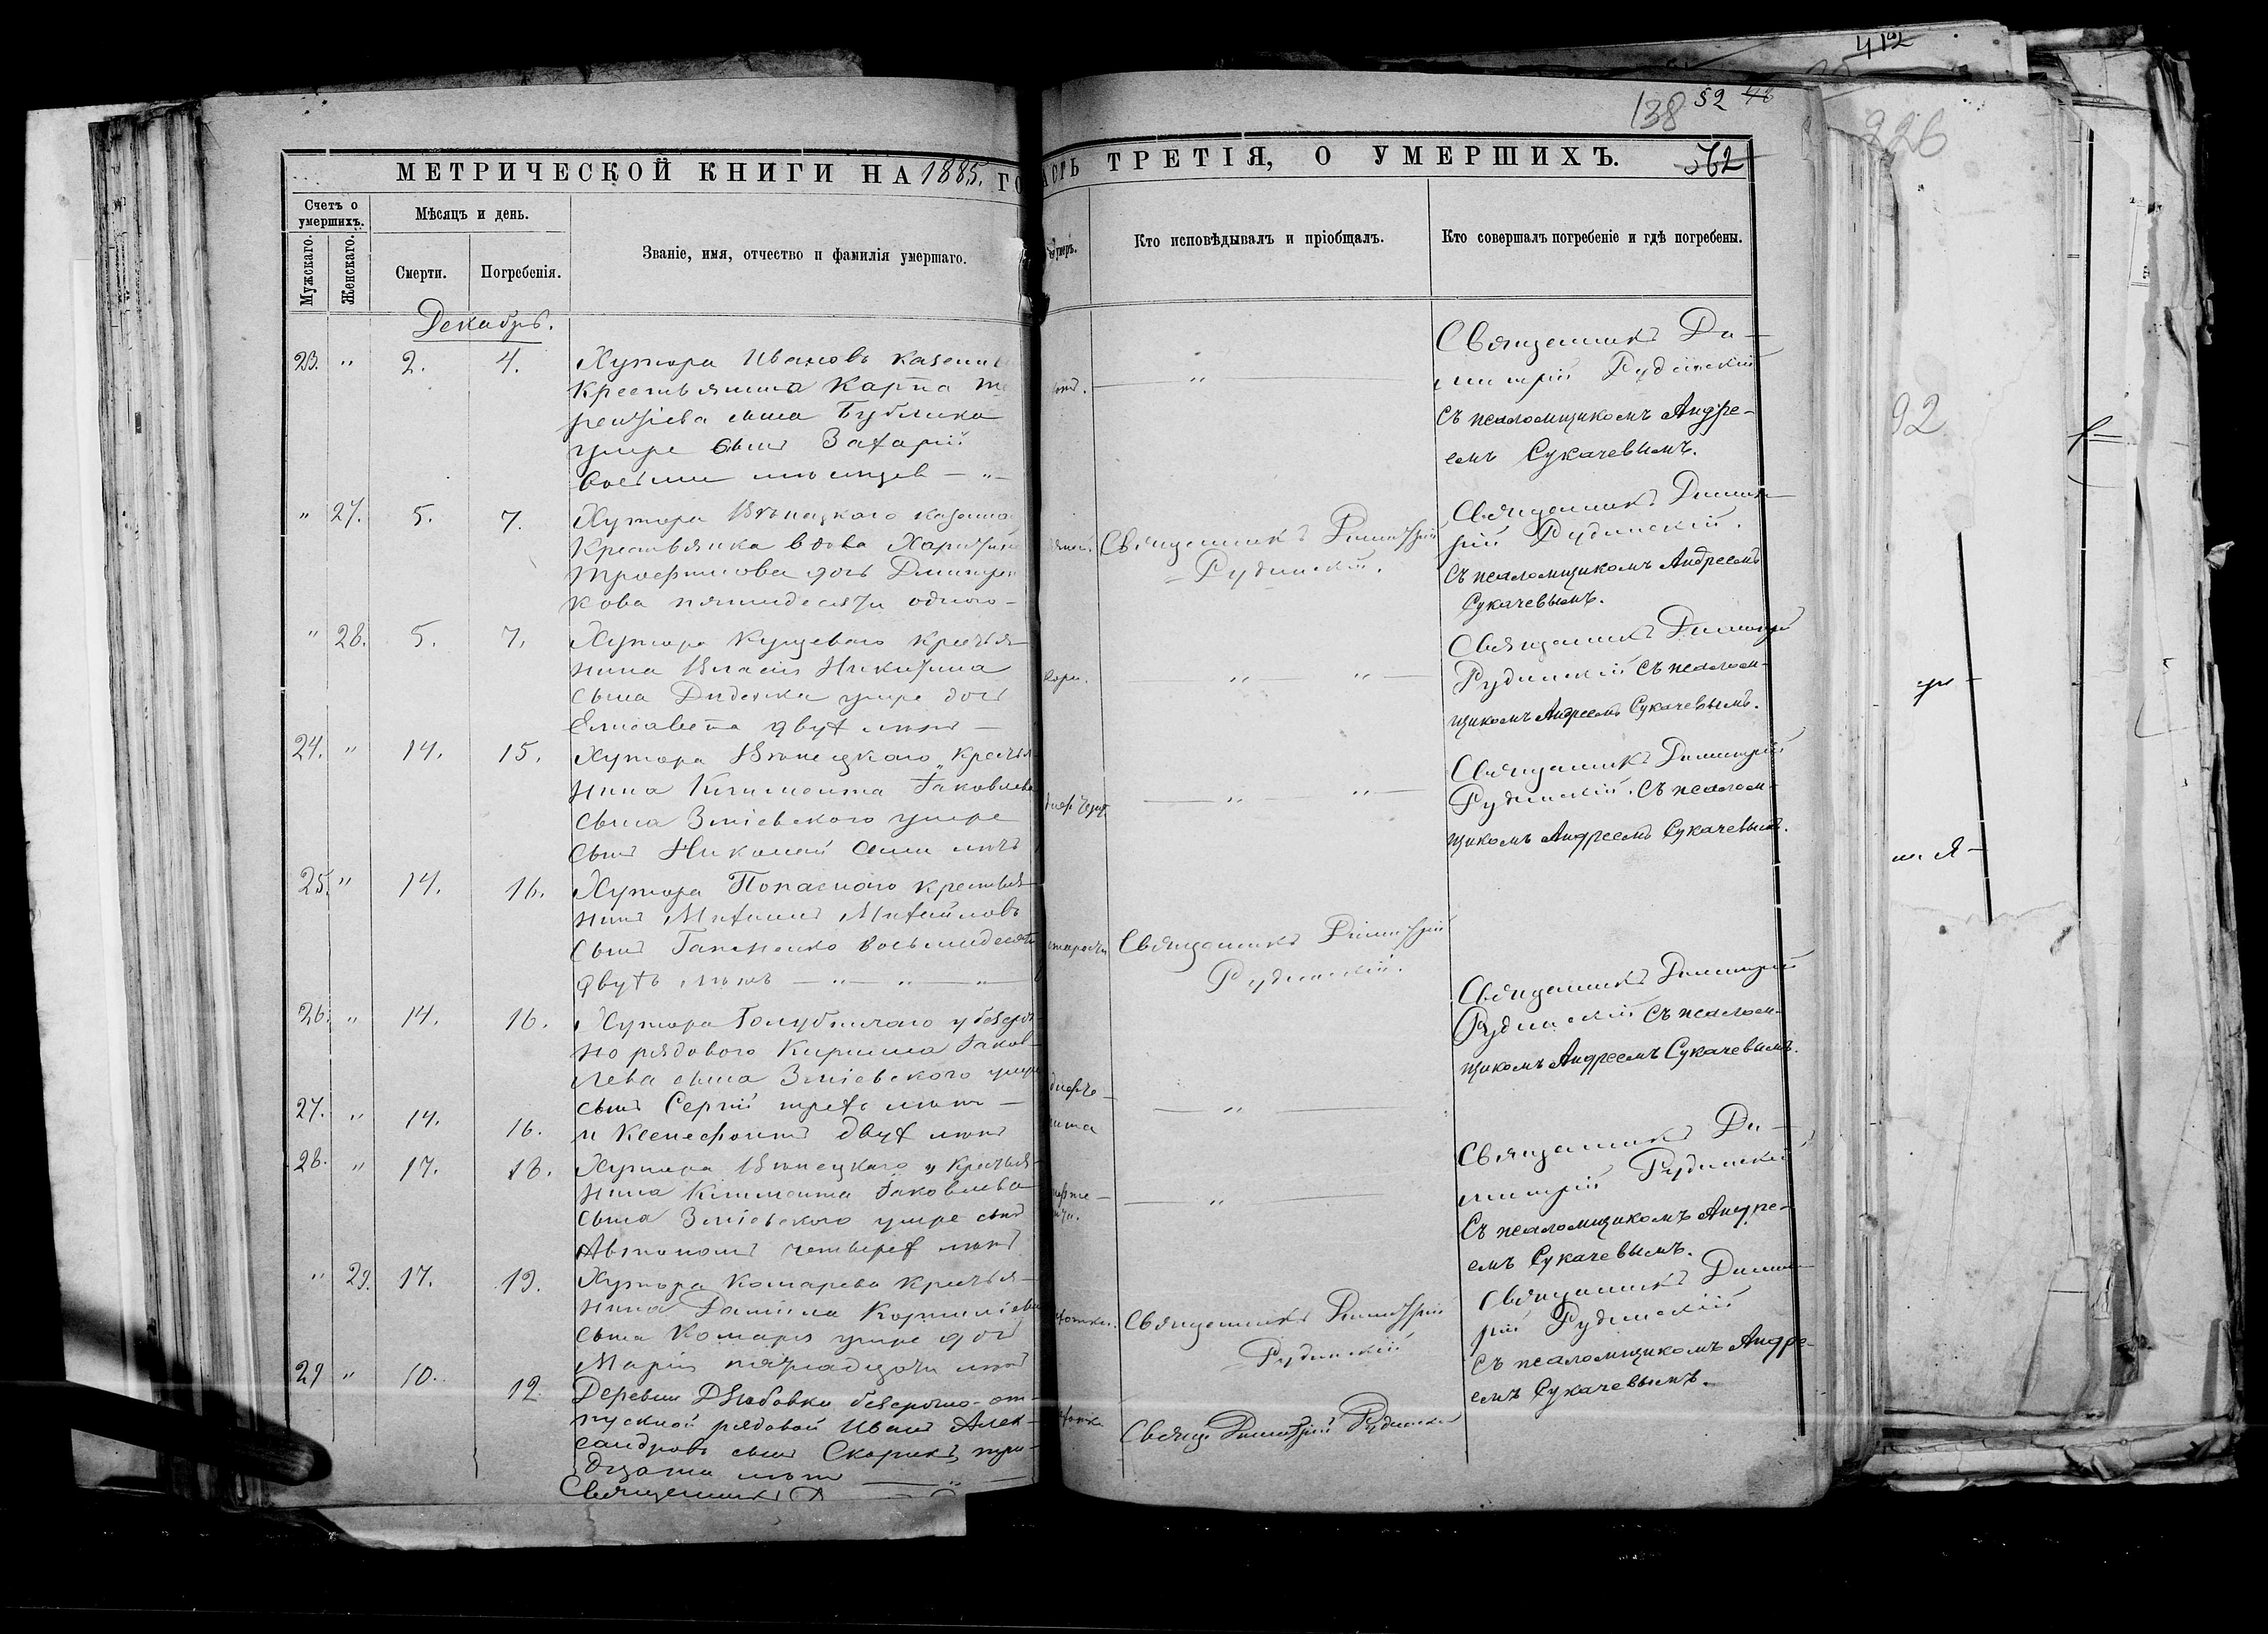 412
138 52 48
226
МЕТРИЧЕСКОЙ КНИГИ НА 1885. ГО
АСТЬ ТРЕТІЯ, О УМЕРШИХЪ. 562
Счетъ о умершихъ.
Мужскаго.
Женскаго.
Мѣсяцъ и день.
Смерти.
Погребенія.
Званіе, имя, отчество и фамилія умершаго.
умеръ.
Кто исповѣдывалъ и пріобщалъ.
Кто совершалъ погребеніе и гдѣ погребены.
Декабрь.
23. " 2. 4.
Хутора Ивановъ казенн
Крестьянина Карпа Те
рентіева сына Бублика
умре сынъ Захарій
восьми месяцев — " —
— " —
Священникъ Ди—
митрій Рудинскій
съ псаломщикомъ Андре-
емъ Сукачевымъ.
" 27. 5. 7.
Хутора казенна
Крестьянка вдова Харитина
Трофимова дочь Дмитрен
кова пятидесяти одного —
Священникъ Димитрій
Рудинскій.
Священникъ Димит
рій Рудинскій.
съ псаломщикомъ Андреемъ
Сукачевымъ.
" 28. 5. 7.
Хутора Куцеваго крестья
нина Власія Никитина
сына умре дочь
Елисавета двух летъ —
кори.
— " — " —
Священникъ Димитрій
Рудинскій съ псалом-
щикомъ Андреемъ Сукачевымъ.
24. " 14. 15.
Хутора крестья
нина Климента Іаковлева
сына Зміевского умре
сынъ Николай семи летъ
— " — " —
Священникъ Димитрій
Рудинскій. съ псалом-
щикомъ Андреемъ Сукачевымъ.
25. " 14. 16.
Хутора Попаснаго крестья
нинъ Михаилъ Михайловъ
сынъ Гапченко восьмидесяти
двухъ летъ — " — " — " —
старости
Священникъ Димитрій
Рудинскій.
Священникъ Димитрій
Рудинскій съ псалом-
щикомъ Андреемъ Сукачевымъ.
26. " 14. 16.
Хутора Голубничаго у безсроч
но рядового Кирилла Іаков-
лева сына Зміевского умре
сынъ Сергій трехъ летъ —
27. " 14. 16.
и Ксенофонтъ двух летъ
дифте-
рита
— " —
28. " 17. 18.
Хутора " крестья-
нина Климента Іаковлева
сына Зміевского умре сынъ
Автономъ четырех летъ
— " —
Священникъ Ди—
митрій Рудинскій
съ псаломщикомъ Андре-
емъ Сукачевымъ.
" 29. 17. 19.
Хутора Комарева крестья-
нина Даніила Корниліева
сына Комаря умре дочь
Марія пятнадцати летъ
чахотки.
Священникъ Димитрій
Рудинскій
Священникъ Димит
рій Рудинскій
съ псаломщикомъ Андре-
емъ Сукачевымъ.
29 " 10. 12
Деревни безсрочно-от-
пускной рядовой Иванъ Алек-
сандровъ сынъ Скорикъ, три-
дцати летъ — " —
Свящ. Димитрій Рудинскій
Священникъ Д
92